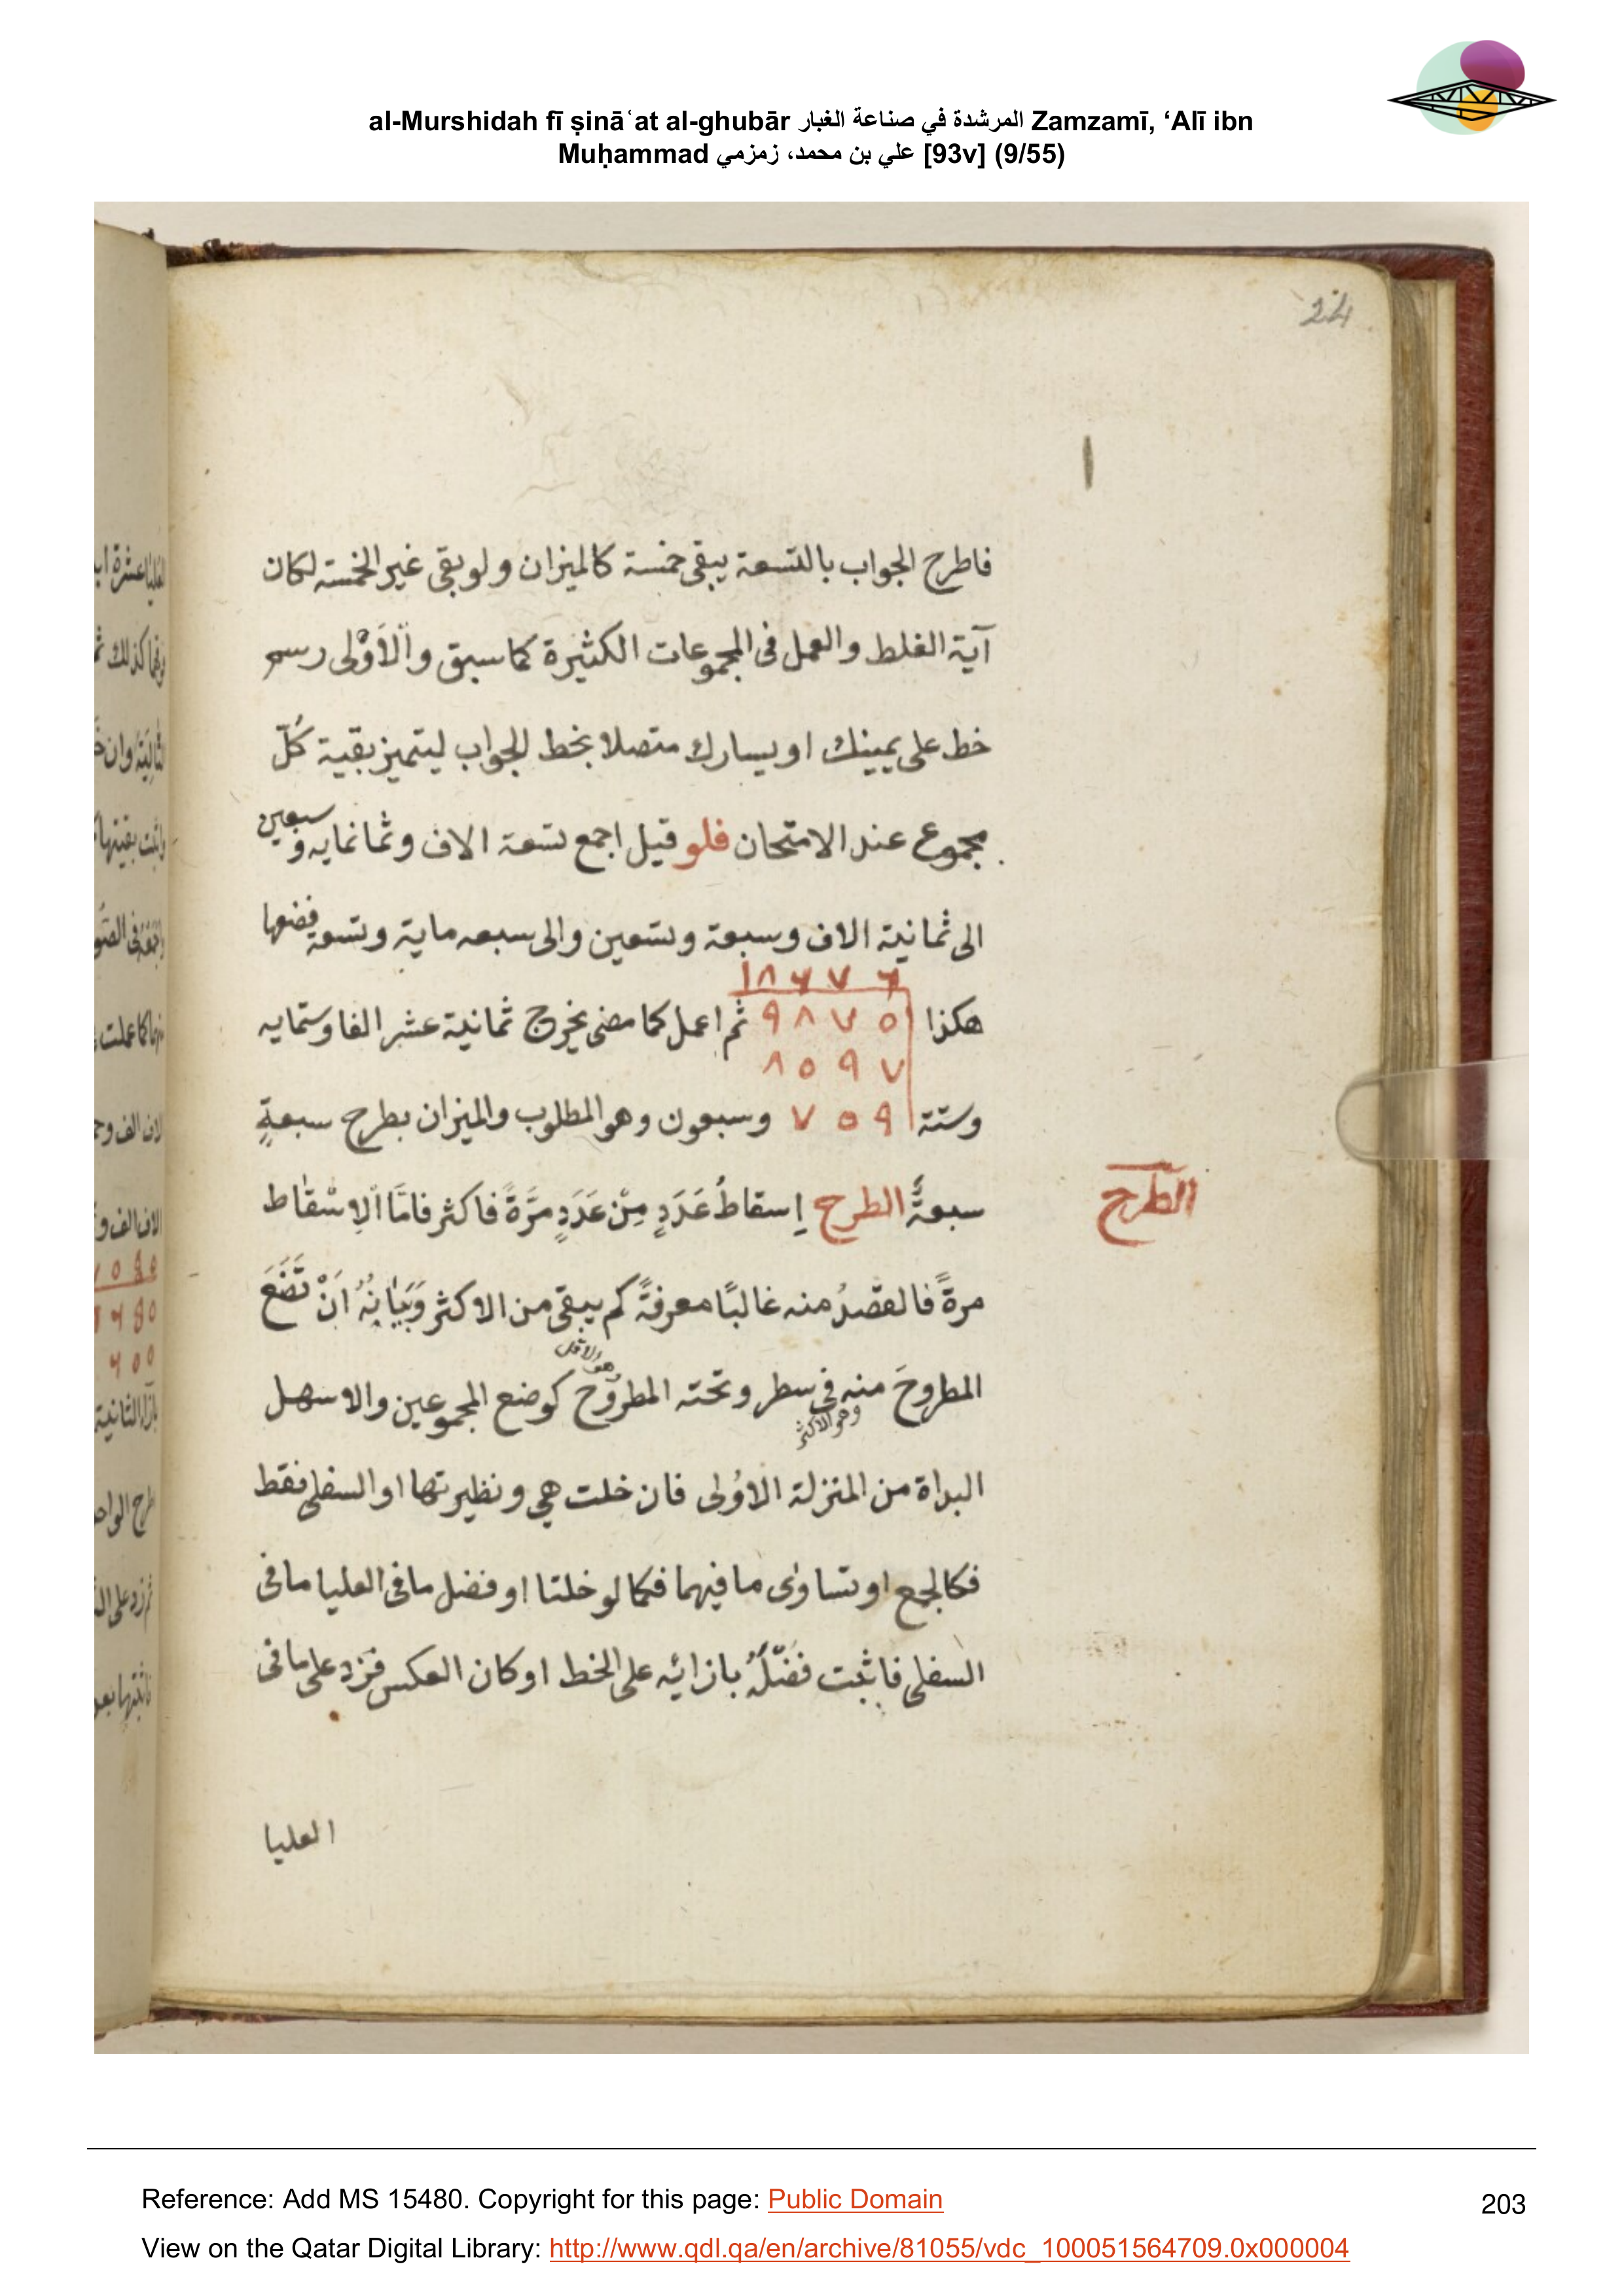 al-Murshidah fī ṣinā‘at al-ghubār المرشدة في صناعة الغبار Zamzamī, ‘Alī ibn
Muḥammad علي بن محمد، زمزمي [93v] (9/55)
24
فاطرح الجواب بالتسعة يبقى خمسة كالميزان ولو بقى غير الخمسة لكان
آية الغلط والعمل فى المجموعات الكثيرة كما سبق والأَوْلى رسم
خط على يمينك او يسارك متصلا بخط الجواب ليتميز بقية كُلّ
مجموع عند الامتحان فلو قيل اجمع تسعة الاف وثمانمايه و سبعين
الى ثمانية الاف وسبعة وتسعين والى سبعه ماية وتسعة فضعها
١٨٦٧٦
هكذا ٩٨٧٥ ثم اعمل كما مضى يخرج ثمانية عشر الفا وستمايه
٨٥٩٧
وستة ٧٥٩ وسبعون وهو المطلوب والميزان بطرح سبعةٍ
سبعةً الطرح إسقاطُ عَدَدٍ مِنْ عَدَدٍ مرَّةً فاكثر فامَّا الإسْقاط
الطرح
مرةً فالقصْدُ منه غالبًا معرفةُ كم يبقى من الاكثر وَبَيَانُهُ اَنْ تَضَعَ
هو الاقل
المطروحَ منه فى سطر وتحته المطروح كوضع المجموعين والاسهل
وهو الاكثر
البداة من المنزلة الاُولى فان خلت هي ونظيرتها او السفلى فقط
فكالجمع او تساوٰى ما فيهما فكما لو خلتا او فضل ما فى العليا ما فى
السفلى فاثبت فضْلَهُ بازائه على الخط او كان العكس فزد على ما فى
العليا
Reference: Add MS 15480. Copyright for this page: Public Domain
203
View on the Qatar Digital Library: http://www.qdl.qa/en/archive/81055/vdc_100051564709.0x000004